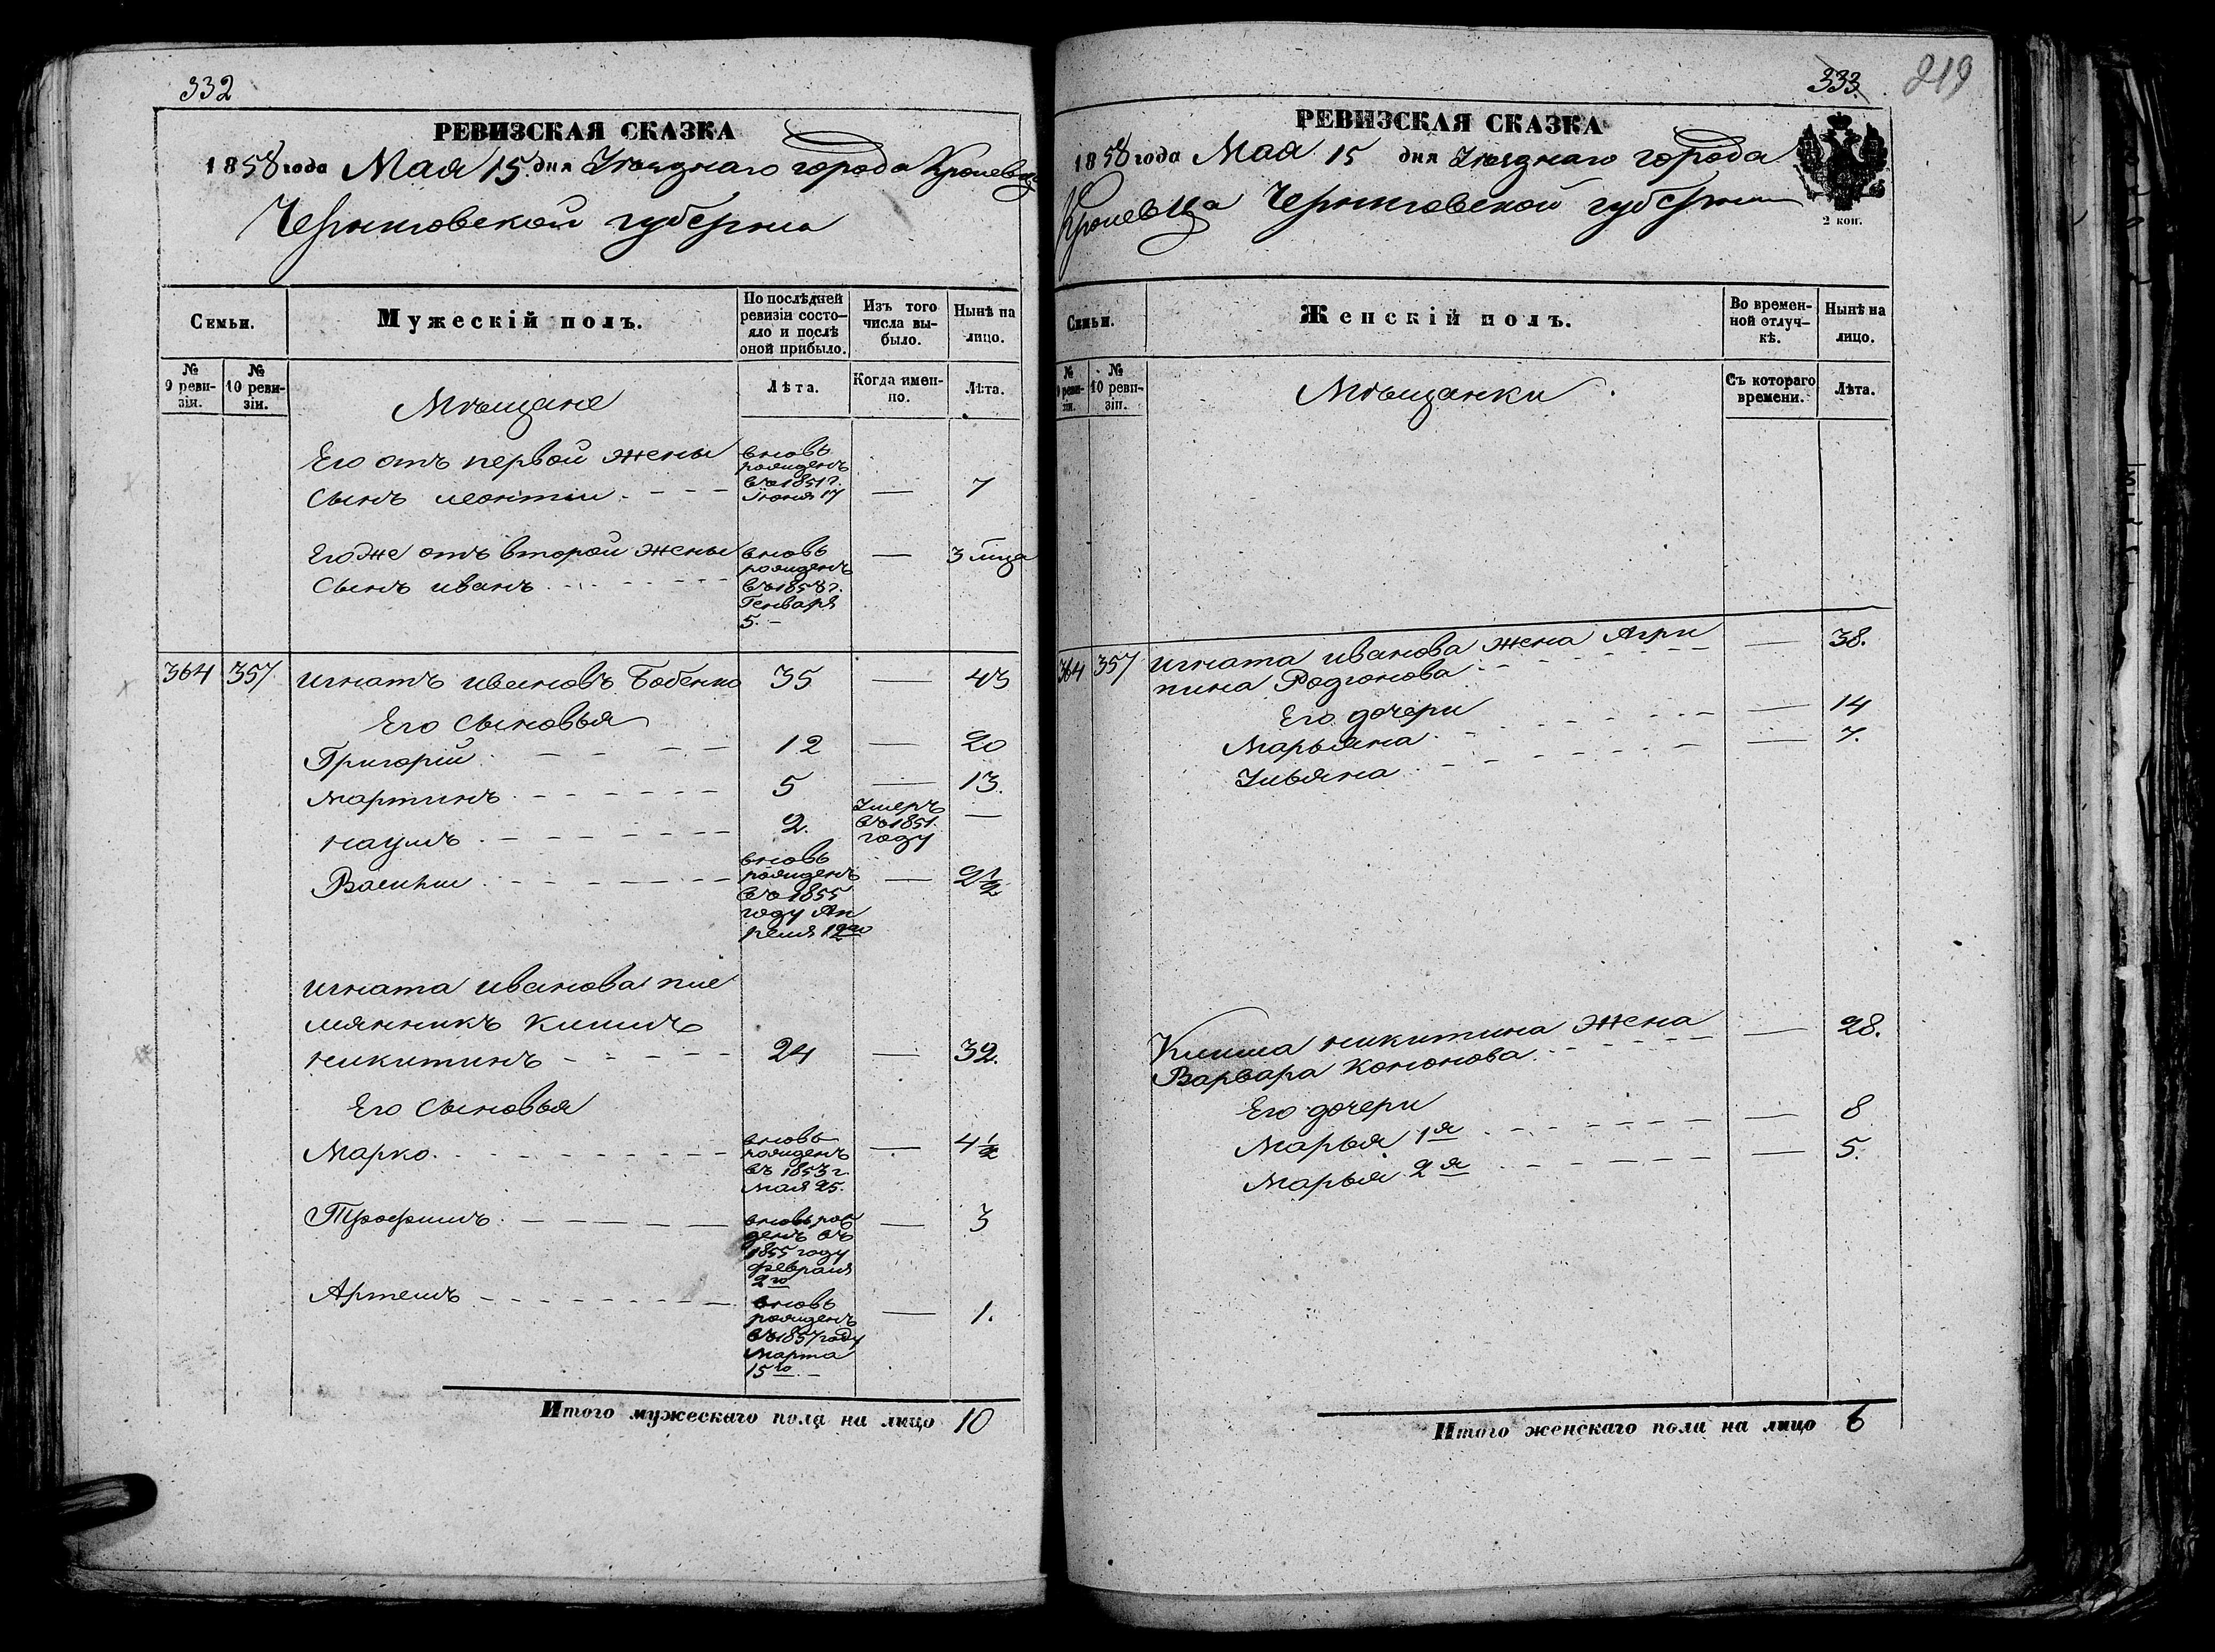 332
РЕВИЗСКАЯ СКАЗКА
1858 года Мая 15. дня Уѣзднаго города Кролевца
Черниговской губерніи
Семьи.
Мужескій полъ.
По послѣдней
ревизіи состо-
яло и послѣ
оной прибыло.
Изъ того
числа вы-
было.
Нынѣ на
лицо.
№
9 реви-
зіи.
№
10 реви-
зіи.
Мѣщане
Лѣта.
Когда имен-
но.
Лѣта.
Его отъ первой жены
сынъ Леонтій
вновь
рожденъ
въ 1851 г.
Іюня 17
7
Его же отъ второй жены
Сынъ Иванъ
вновь
рожденъ
въ 1858 г.
Генваря
5.
3 мца
364 357 Игнатъ Ивановъ Бобенко 35 — 43
Его Сыновья
Григорій 12 — 20
Мартинъ 5 — 13.
Наумъ 2. —
Умеръ
въ 1851.
году
Василій
вновь
рожденъ
въ 1855
году Ап
реля 12го
— 2 1/2
Игната Иванова пле
мянникъ Климъ
Никитинъ 24 — 32.
Его Сыновья
Марко.
вновь
рожденъ
въ 1853 г.
Мая 25.
— 4 1/2
Трофимъ
вновь рож
денъ въ
1855 году
февраля
2го
— 3
Артемъ
вновь
рожденъ
въ 1857 году
Марта
15го
— 1.
Итого мужескаго пола на лицо 10
333.
219
РЕВИЗСКАЯ СКАЗКА
1858 года Мая 15 дня Уѣзднаго города
Кролевца Черниговской губерніи
2 коп.
Семьи.
Женскій полъ.
Во времен-
ной отлуч-
кѣ.
Нынѣ на
лицо.
№
9 реви-
зіи.
№
10 реви-
зіи.
Мѣщанки
Съ котораго
времени.
Лѣта.
364 357 Игната Иванова жена Агри
пина Родіонова — 38.
Его дочери
Марьяна — 14
Ульяна — 7.
Клима Никитина жена
Варвара Кононова — 28.
Его дочери
Марья 1я — 8
Марья 2я — 5.
Итого женскаго пола на лицо 6